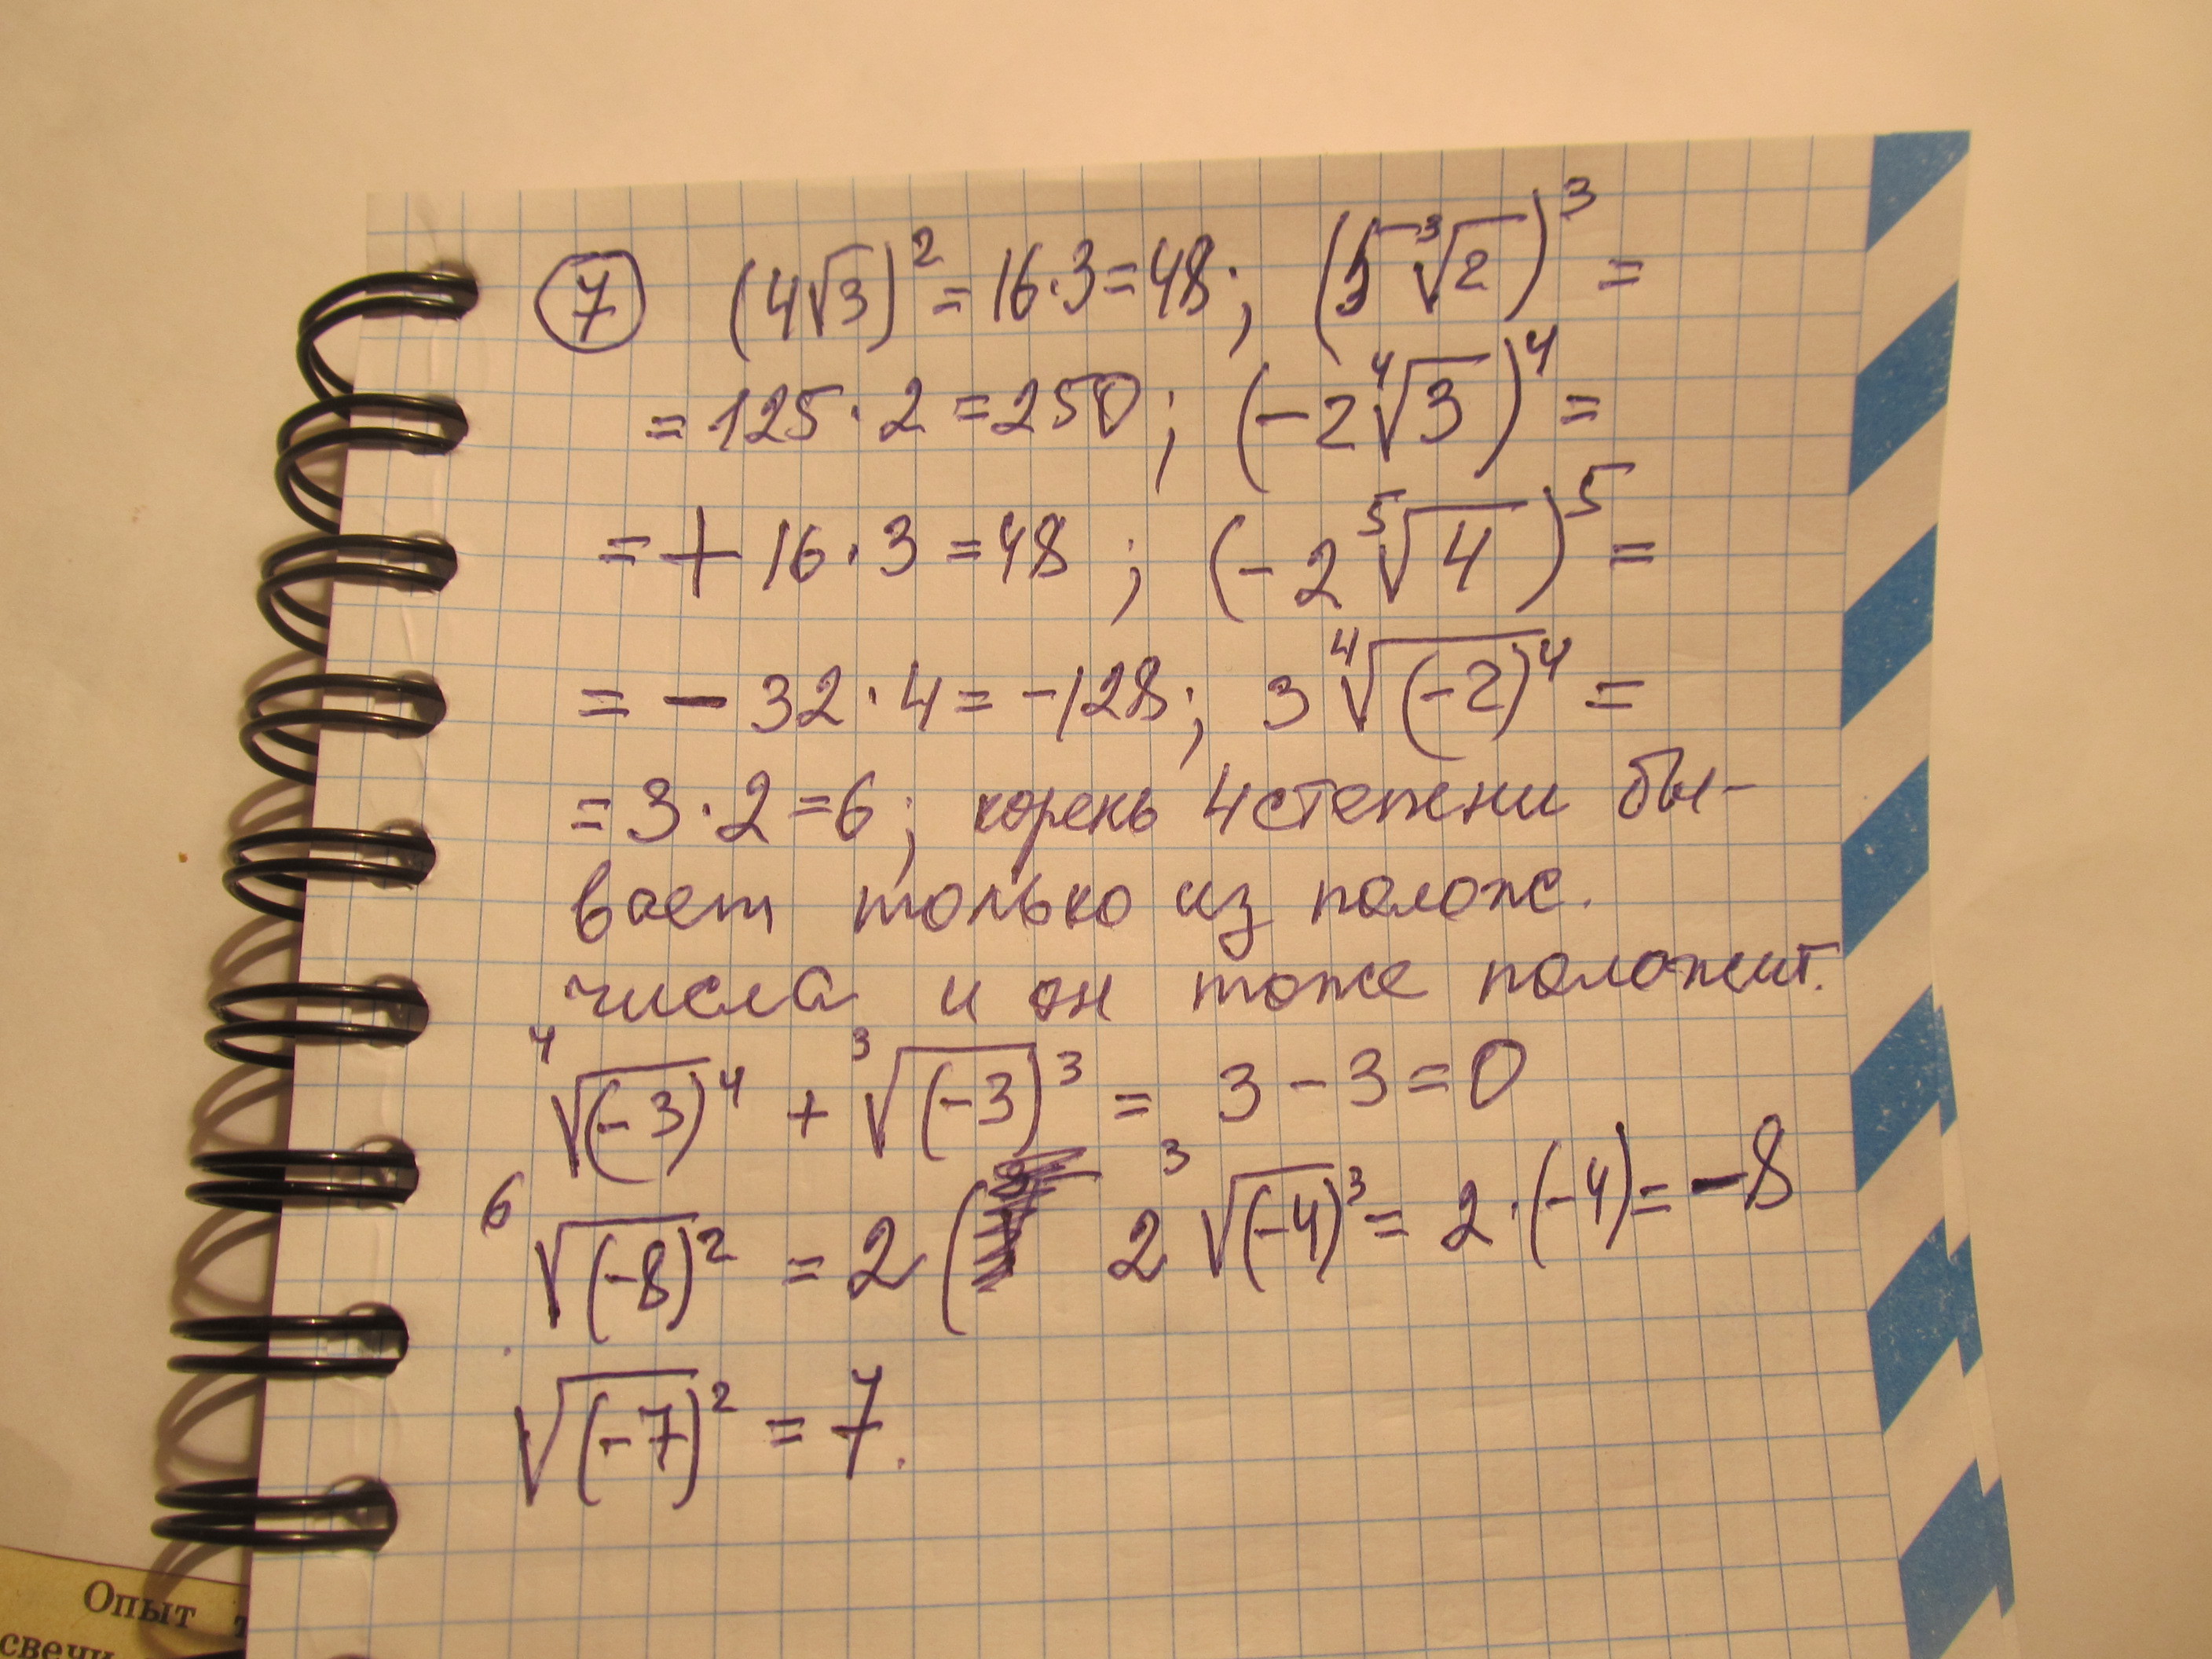 7 (4√3)² = 16·3 = 48; (5 ³√2)³ =
= 125 · 2 = 250; (-2 ⁴√3)⁴ =
= + 16 · 3 = 48; (-2 ⁵√4)⁵ =
= - 32 · 4 = -128; 3 ⁴√(-2)⁴ =
= 3 · 2 = 6; корень 4 степени бы-
вает только из полож.
числа и он тоже положит.
⁴√(-3)⁴ + ³√(-3)³ = 3 - 3 = 0
⁶√(-8)² = 2 ( 2 ³√(-4)³ = 2 · (-4) = -8
√(-7)² = 7.
Опыт
свечи